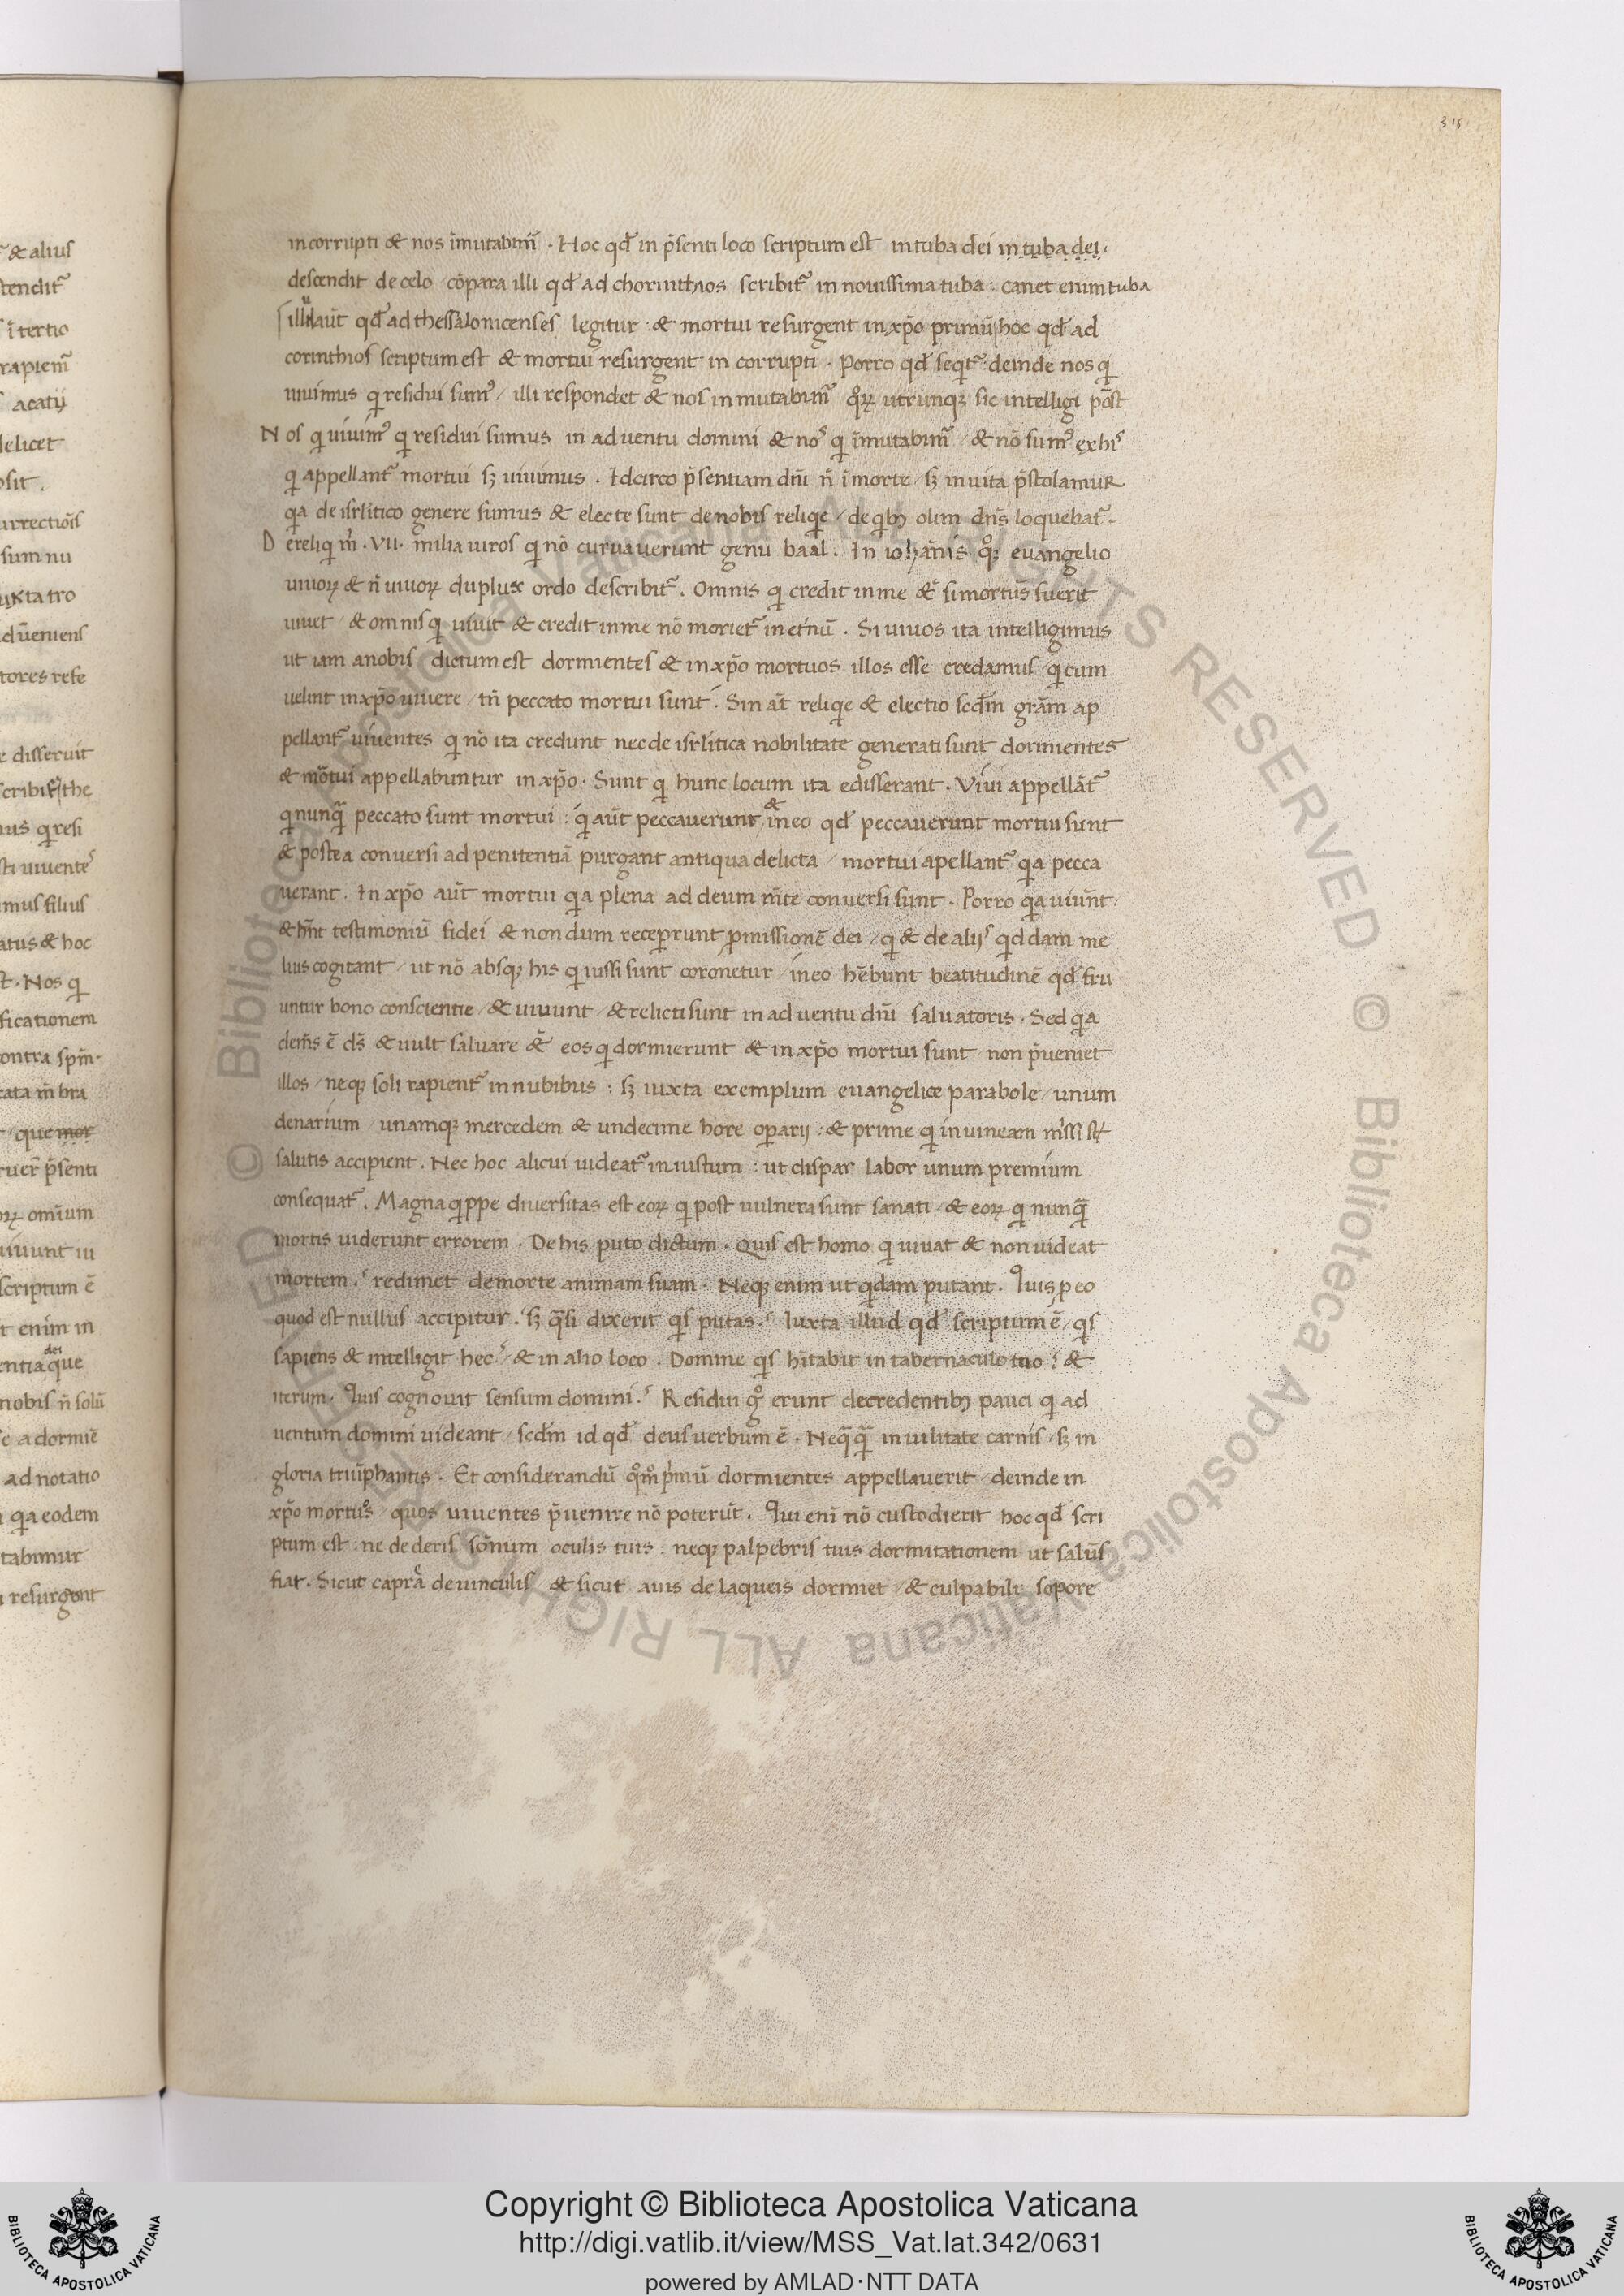 & alius
tendit᷑
ī tertio
rapiem᷑
acatij
delicet
osit.
urrectiōis
sum nu
iuxta tro
ad ueniens
tores refe
e disseruit
scribit᷑ the
nus q̇ resi
sti uiuente᷒
imus filius
atus & hoc
t. Nos q̇
ficationem
contra spm̄.
cata m̄bra
que mor
ruer̄ p̄senti
oꝝ omīum
uiuunt iu
scriptum ē
t enim in
entia dei que
nobis n̄ solū
e a dormiē
ad notatio
q̇a eodem
tabimur
resurgent
315
incorrupti & nos īmutabim᷑. Hoc qđ in p̄senti loco scriptum est in tuba dei in tuba dei.
descendit de celo cōpara illi qđ ad chorinthios scribit᷑ in nouissima tuba: canet enim tuba
illud aūt qđ ad thessalonicenses legitur: & mortui resurgent in xp̄o primū hoc qđ ad
corinthios scriptum est & mortui resurgent in corrupti. Porro qđ seq̇t᷑: deinde nos q̇
uiuimus q̇ residui sum᷒/ illi respondet & nos inmutabim᷑ q̊ꝝ utrunqꝫ sic intelligi pōst
Nos q̇ uiuim᷒ q̇ residui sumus in ad uentu domini & no᷒ q̇ īmutabim᷑/ & nō sum᷒ ex hi᷒
q̇ appellant᷑ mortui sꝫ uiuimus. Idcirco p̄sentiam dn̄i n̄ ī morte/ sꝫ in uita p̄stolamur
q̇a de isrl̄itico genere sumus & electe sunt de nobis reliq̇e/ de q̇bꝫ olim dn̄s loquebat᷑.
Dereliq̇ m̊. VII. milia uiros q̇ nō curuauerunt genu baal. In ioħānis q̊qꝫ euangelio
uiuoꝝ & n̄ uiuoꝝ duplux ordo describit᷑. Omnis q̇ credit in me &̄ si mortūs fuerit
uiuet/ & omnis q̇ uiuit & credit in me nō moriet᷑ in et̄nū. Si uiuos ita intelligimus
ut iam a nobis dictum est dormientes & in xp̄o mortuos illos esse credamus/ q̇ cum
uelint in xp̄o uiuere/ tn̄ peccato mortui sunt. Sin āt reliq̇e & electio scđm grām ap
pellant᷑ uiuentes q̇ nō ita credunt nec de isrl̄itica nobilitate generati sunt dormientes
& mōtui appellabuntur in xp̄o. Sunt q̇ hunc locum ita edisserant. Viui appellāt᷑
q̇ nunq̄ peccato sunt mortui: q̇ aūt peccauerunt & in eo qđ peccauerunt mortui sunt
& postea conuersi ad penitentiā purgant antiqua delicta/ mortui apellant᷑ q̇a pecca
uerant. In xp̄o aūt mortui q̇a plena ad deum m̄te conuersi sunt. Porro q̇a uiuūt/
& hn̄t testimoniū fidei & non dum receperunt ꝓmissionē dei/ q̇ & de alij᷒ q̇ddam me
lius cogitant/ ut nō absqꝫ his q̇ iussi sunt coronetur/ in eo hēbunt beatitudinē qđ fru
untur bono conscientie/ & uiuunt/ & relicti sunt in ad uentu dn̄i saluatoris. Sed q̇a
clem̄s ē ds̄ & uult saluare &̄ eos q̇ dormierunt & in xp̄o mortui sunt non p̄ueniet
illos/ neqꝫ soli rapient᷑ in nubibus: sꝫ iuxta exemplum euangelice parabole/ unum
denarium/ unamqꝫ mercedem & undecime hore oꝑarij: & prime q̇ in uineam m̄issi st̄
salutis accipient. Nec hoc alicui uideat᷑ iniustum: ut dispar labor unum premium
consequat᷑. Magna q̇ppe diuersitas est eoꝝ q̇ post uulnera sunt sanati/ & eoꝝ q̇ nunq̄
mortis uiderunt errorem. De his puto dictum. Quis est homo q̇ uiuat & non uideat
mortem? redimet de morte animam suam. Neqꝫ enim ut q̇dam putant. Quis ꝑ eo
quod est nullus accipitur. sꝫ q̄si dixerit q̇s putas? Iuxta illud qđ scriptum ē/ q̇s
sapiens & intelligit hec? & in alio loco. Domine q̇s hītabit in tabernaculo tuo? &
iterum. Quis cognouit sensum domini? Residui g̊ erunt de credentibꝫ pauci q̇ ad
uentum domini uideant/ scđm id qđ deus uerbum ē. Neq̄q̄ in uilitate carnis/ sꝫ in
gloria triūphantis. Et considerandū q̊m̊ ṗmū dormientes appellauerit/ deinde in
xp̄o mortuo᷒/ quos uiuentes p̄uenire nō poterūt. Qui eni nō custodierit hoc qđ scri
ptum est: ne dederis sōnum oculis tuis: neqꝫ palpebris tuis dormitationem ut salūs
fiat. Sicut caprea de uinculis/ & sicut auis de laqueis dormiet/ & culpabili sopore
© Biblioteca Apostolica Vaticana ALL RIGHTS RESERVED © Biblioteca Apostolica Vaticana ALL RIGHTS RESERVED
Copyright © Biblioteca Apostolica Vaticana
http://digi.vatlib.it/view/MSS_Vat.lat.342/0631
powered by AMLAD·NTT DATA
BIBLIOTECA APOSTOLICA VATICANA
BIBLIOTECA APOSTOLICA VATICANA